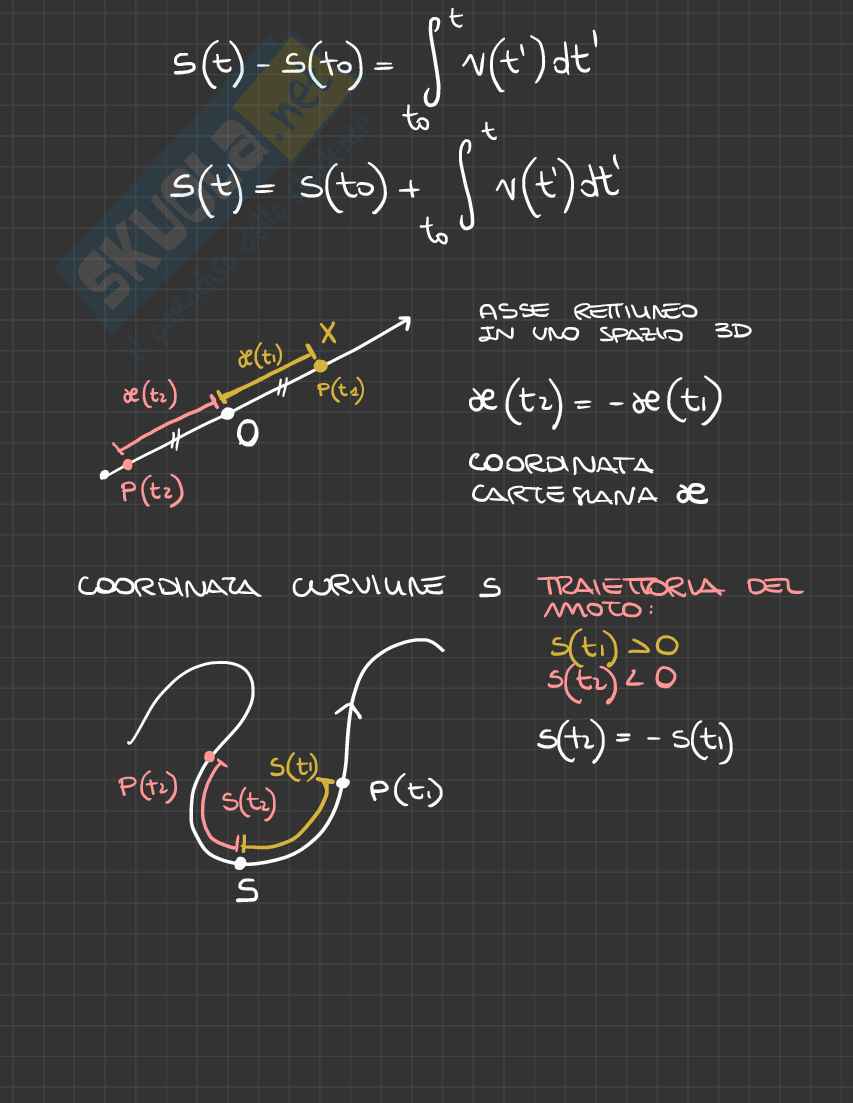 s(t) - s(t0) = ∫ t0 t v(t')dt'
s(t) = s(t0) + ∫ t0 t v(t')dt'
SKUOLA.net
ASSE RETTILINEO
IN UNO SPAZIO 3D
x(t1)
X
x(t2)
P(t1)
O
P(t2)
x(t2) = -x(t1)
COORDINATA
CARTESIANA x
COORDINATA CURVILINE S
TRAIETTORIA DEL
MOTO:
s(t1) > 0
s(t2) < 0
s(t2) = - s(t1)
P(t2)
s(t2)
s(t1)
P(t1)
S